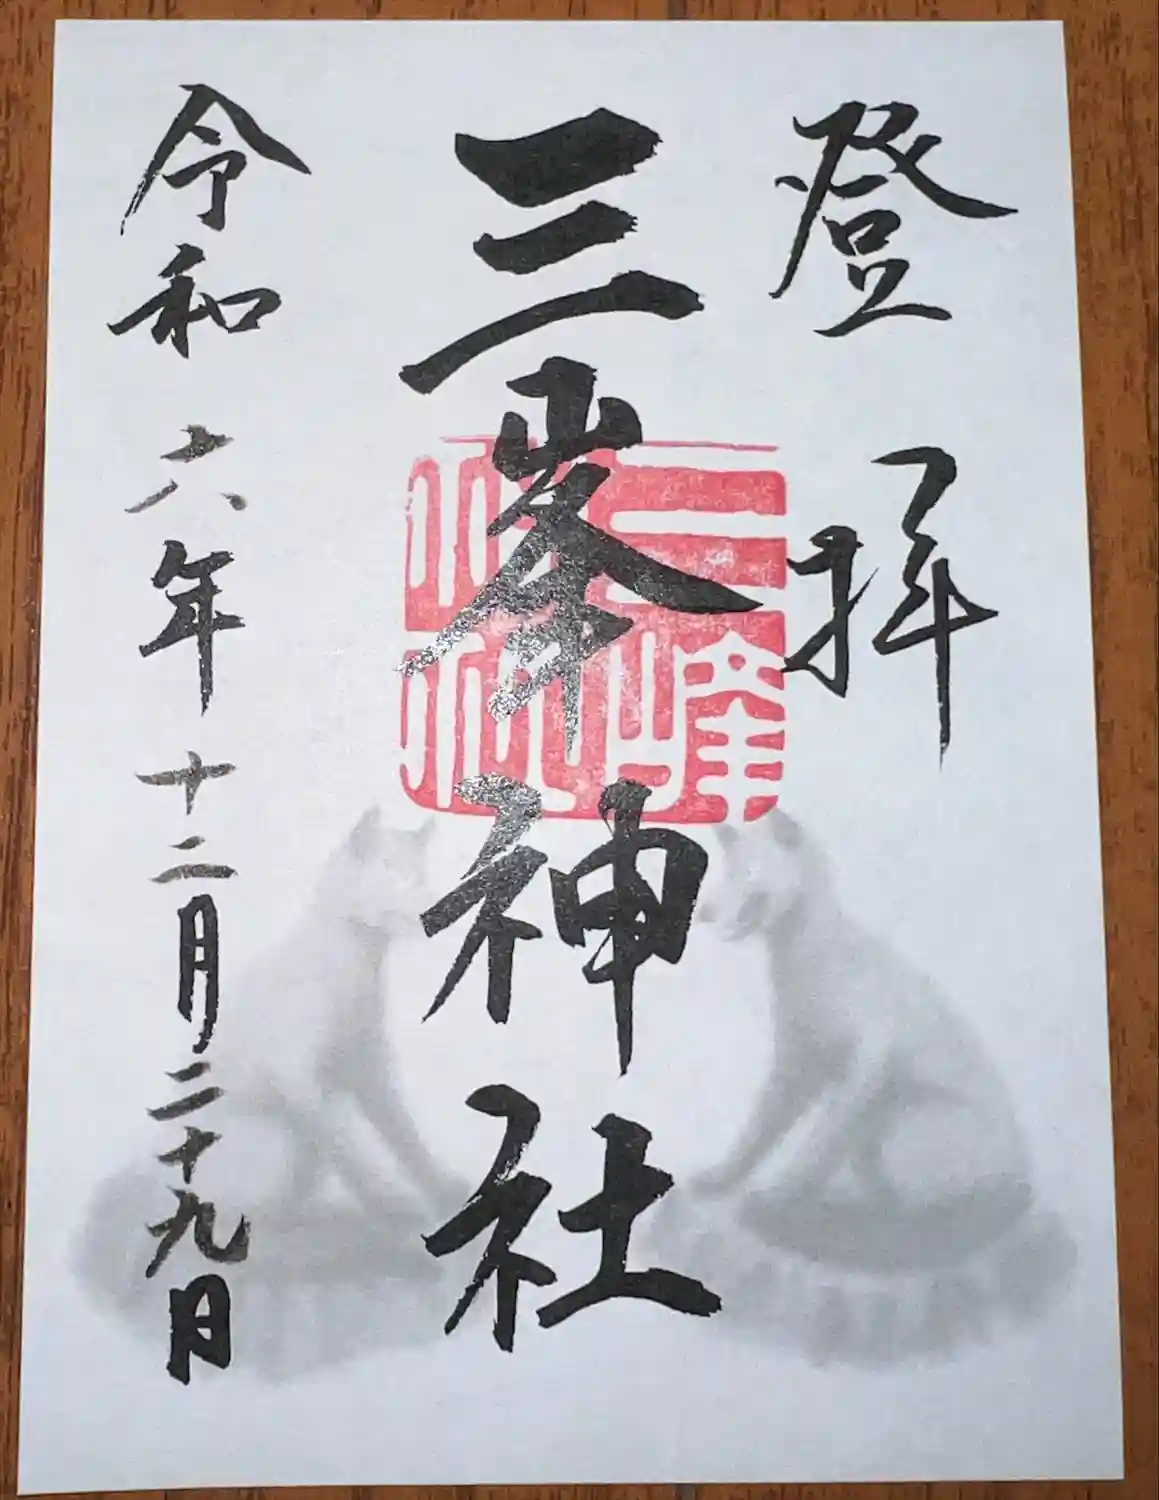 登拝
三峯神社
令和六年十二月二十九日